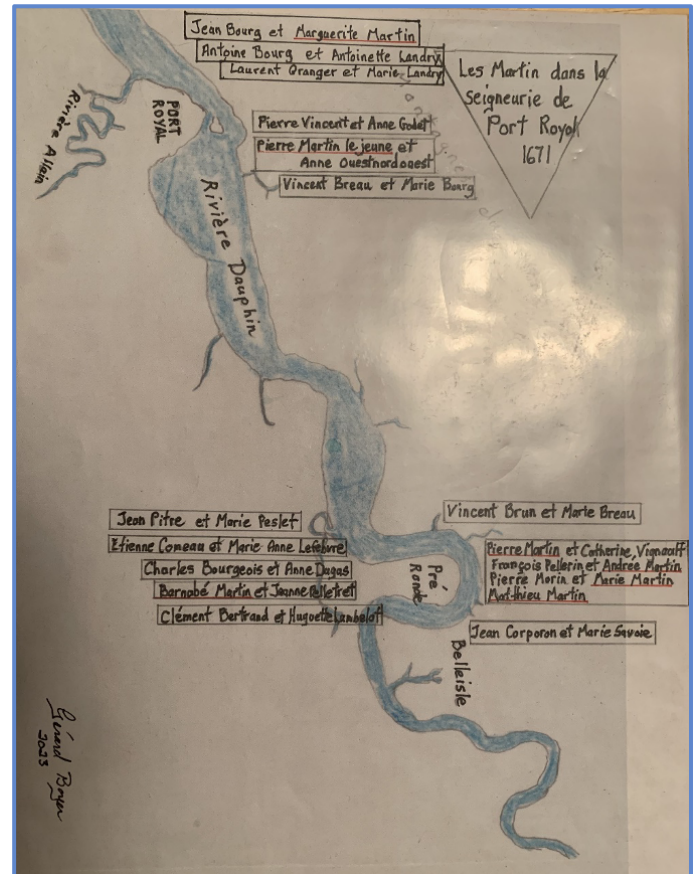 Jean Bourg et Marguerite Martin
Antoine Bourg et Antoinette Landry
Laurent Granger et Marie Landry
Les Martin dans la
seigneurie de
Port Royal
1671
Rivière Allain
PORT
ROYAL
Pierre Vincent et Anne Godet
Pierre Martin le jeune et
Anne Ouestnordouest
Vincent Breau et Marie Bourg
Rivière Dauphin
Vincent Brun et Marie Breau
Jean Pitre et Marie Peslet
Etienne Comeau et Marie Anne Lefebvre
Charles Bourgeois et Anne Dugas
Barnabé Martin et Jeanne Pelletret
Clément Bertrand et Huguette Lambelot
Pré
Ronde
Pierre Martin et Catherine Vigneau
François Pellerin et Andrée Martin
Pierre Morin et Marie Martin
Mathieu Martin
Jean Corporon et Marie Savoie
Belleisle
Gérard Boyer
2023